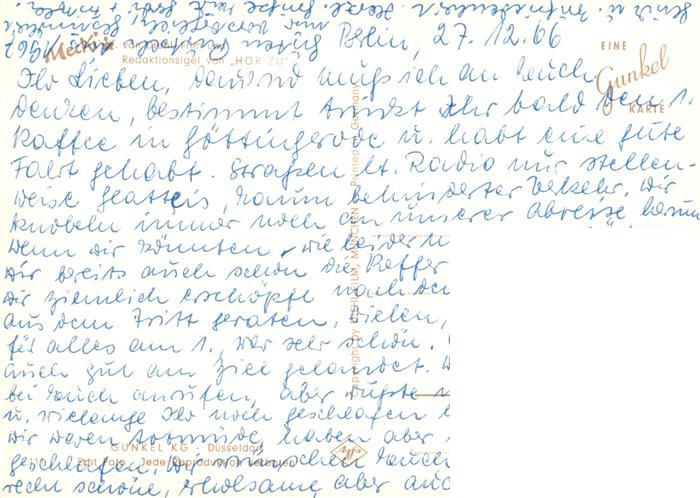 Berlin, 27.12.66
Mecki
Redaktionsigel von "HÖR ZU"
EINE
Gunkel
KARTE
Ihr Lieben, dauernd muß ich an Euch
denken, bestimmt trinkt Ihr bald den 1.
Kaffee in Göttingerode u. habt eine gute
Fahrt gehabt. Straßen lt. Radio nur stellen-
weise Glatteis, kaum behinderter Verkehr. Wir
knobeln immer noch an unserer Adresse herum
wenn wir könnten, wie beide
wir bereits auch schon die Koffer
wir ziemlich erschöpft nach
aus dem Tritt geraten. Vielen,
für alles am 1., war sehr schön.
auch gut am Ziel gelandet.
bei Euch anrufen, aber wußte
u. wielange Ihr noch geschlafen
wir waren todmüde, haben aber
geschlafen. Wir wünschen Euch
recht schöne, erholsame, aber auc
Copyright by DIEHL-FILM, MÜNCHEN
Printed in Germany
GUNKEL KG - Düsseldorf
Echt Foto Jede Reproduktion verboten
Agfa